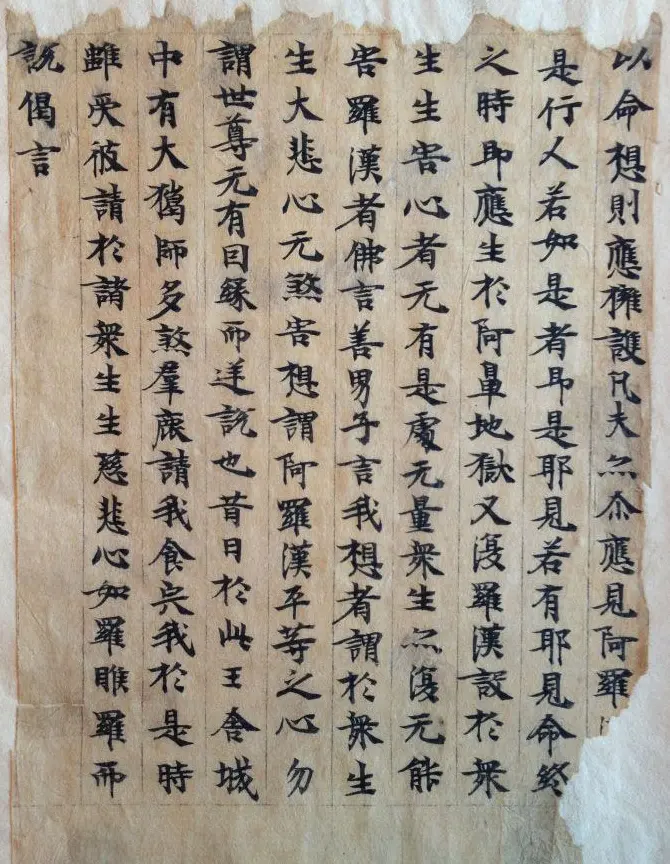 以命想則應擁護凡夫亦尒應見阿羅
是行人若如是者即是耶見若有耶見命終
之時即應生於阿鼻地獄又復羅漢設於衆
生生害心者无有是處无量衆生亦復无能
害羅漢者佛言善男子言我想者謂於衆生
生大悲心无煞害想謂阿羅漢平等之心勿
謂世尊无有因緣而逆說也昔日於此王舍城
中有大獵師多煞羣鹿請我食宍我於是時
雖受彼請於諸衆生生慈悲心如羅睺羅而
說偈言